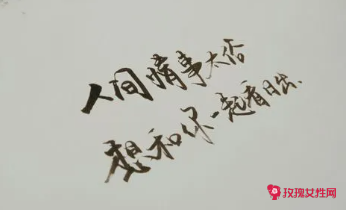 人间情事太俗
想和你一起看日出、
玫瑰女性网